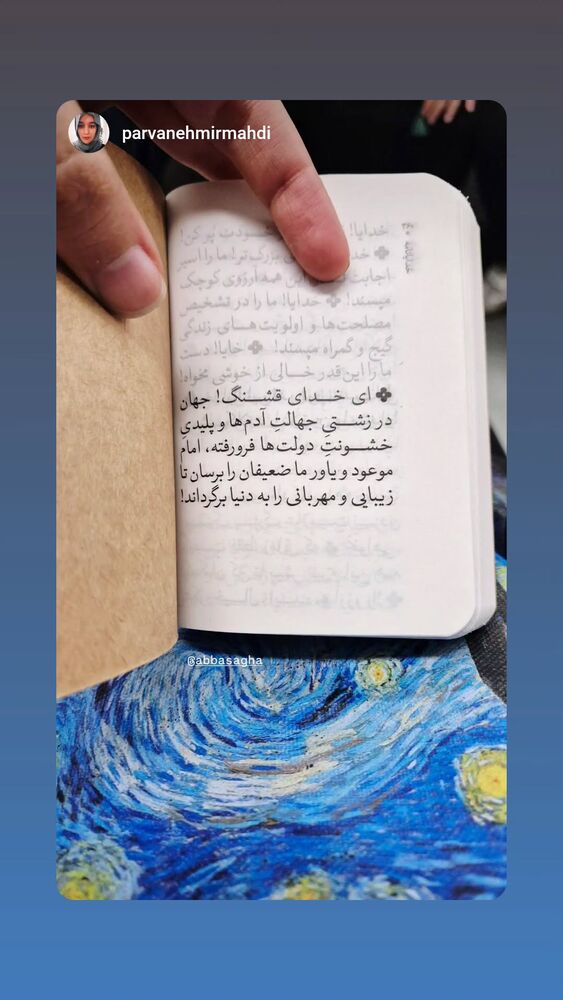 parvanehmirmahdi
خدایا!
بزرگ تو! ما را اسیر
اجابت این همه آرزوی کوچک
مپسند! ✤ خدایا! ما را در تشخیص
مصلحت‌ها و اولویت‌های زندگی
گیج و گمراه مپسند! ✤ خدایا! دست
ما را این‌قدر خالی از خوشی مخواه!
✤ ای خدای قشنگ! جهان
در زشتیِ جهالتِ آدم‌ها و پلیدیِ
خشونتِ دولت‌ها فرورفته، امام
موعود و یاور ما ضعیفان را برسان تا
زیبایی و مهربانی را به دنیا برگرداند!
@abbasagha